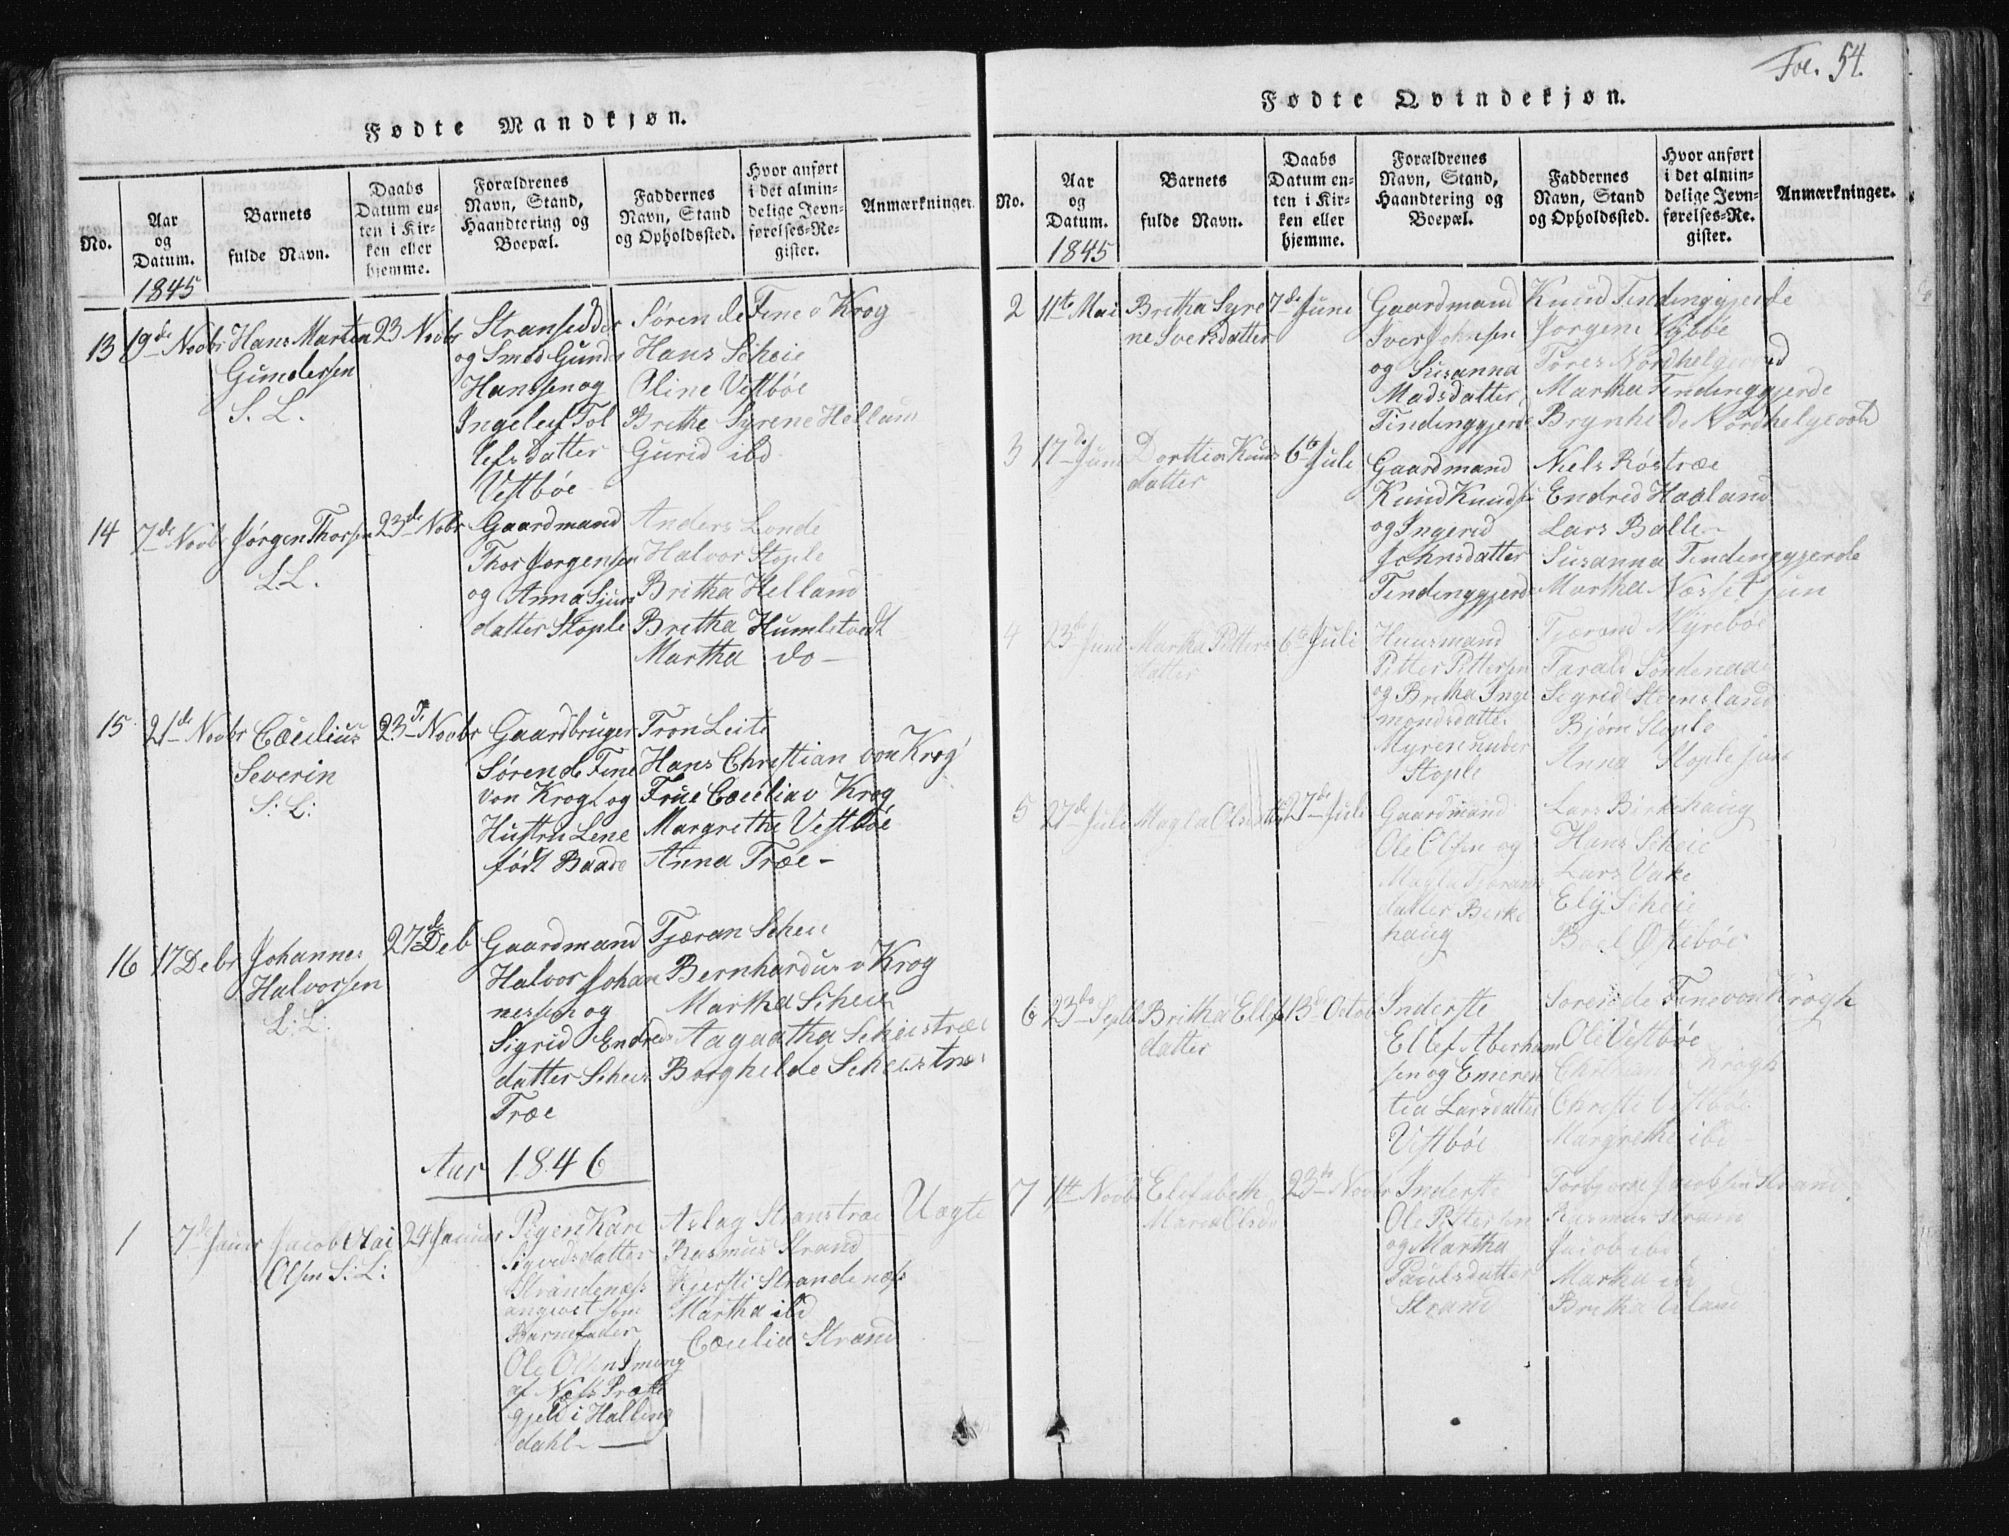 Fødte Mandkjøn.
No.
Aar og Datum.
1845
Barnets fulde Navn.
Daabs Datum enten i Kirken eller hjemme.
Forældrenes Navn, Stand, Haandtering og Boepæl.
Faddernes Navn, Stand og Opholdssted.
Hvor anført i det almindelige Jevnførelses-Register.
Anmærkninger.
13
19de Novbr
Hans Martin
Gundersen
S. L.
23 Novbr
Stransidder
og Smed Gunder
Hanssen og
Ingeleif Tol
lefsdatter
Vestbøe
Søren de Fine v Krog
Hans Scheie
Oline Vestbøe
Brithe Syrene Helland
Gurid ibd
14
7de Novbr
Jørgen Thorsen
L.L.
23de Nobr
Gaardmand
Thor Jørgensen
og Anna Sjurs
datter Stople
Anders Londe
Halvor Stople
Britha Helland
Bretha Humlstvedt
Martha do
15
21de Novbr
Cæcilius
Severin
S: L:
23 Novbr
Gaardbruger
Søren de Fine
von Krog og
Hustru Lene
født Baade
Tron Leite
Hans Christian von Krog
Frue Cæcilia v Krog
Margrethe Vestbøe
Anna Træe
16
17 Debr
Johannes
Halvorsen
L: L:
27de Deb
Gaardmand
Halvor Johan
nessen og
Sigrid Endres
datter Scheie
Træe
Tjæran Scheie
Bernhardus v Krog
Martha Scheie
Aagaatha Scheiestræe
Borghilde Scheistræ
Aar 1846
1
7de Januar
Jacob Olai
Olsen S: L:
24 Januar
Pigen Kari
Sigurdsdatter
Strandenæs
angivet som
Barnefader
Ole Olsen Smeng
af Næss Præste
gjeld i Halling
dahl
Aslag Stranstræe
Rasmus Strand
Kjersti Strandenæs
Martha ibd
Cæcilia Strand
Uægte
Fol. 54.
Fødte Qvindekjøn.
No.
Aar og Datum.
1845
Barnets fulde Navn.
Daabs Datum enten i Kirken eller hjemme.
Forældrenes Navn, Stand, Haandtering og Boepæl.
Faddernes Navn, Stand og Opholdssted.
Hvor anført i det almindelige Jevnførelses-Re-gister.
Anmærkninger.
2
11te Mai
Britha Syre
ne Iversdatter
7de Juni
Gaardmand
Iver Johnsen
og Susanna
Madsdatter
Tindinggjerde
Knud Tindinggjerde
Jørgine Vestbøe
Tores Nordhelgevod
Martha Tindinggjerde
Brynhilde Nordhelgevold
3
17de Juni
Dorthea Knuds
datter
6te Juli
Gaardmand
Knud Knudsen
og Ingerid
Johnsdatter
Tindinggjerde
Niels Røstræe
Endred Haaland
Lars Balle
Susanna Tindinggjerde
Martha Næsset jun
4
23de Juni
Martha Pitters
datter
6te Juli
Huusmand
Pitter Pittersen
og Britha Inge
mondsdatter
Myrene under
Stople
Tjæran Myrebøe
Tarald Søndenaa
Sigrid Steensland
Bjørn Stople
Anna Stople jun
5
27de Juli
Magla Olsdatter
27de Juli
Gaardmand
Ole Olsen og
Magla Tjørans
datter Birke
haug
Lars Birkehaug
Hans Scheie
Lars Vake
Elij Scheie
Boel Østebøe
6
23de Septb
Britha Ellefs
datter
13de Octob
Inderste
Ellef Aberham
sen og Emeren
tia Larsdatter
Vestbøe
Sørende Fine von Krogh
Ole Vestbøe
Christian v Krogh
Christi Vestbøe
Margrethe ibd
7
1te Novbr
Elisabeth
Maria Olsda
23de Novbr
Inderste
Ole Pittersen
og Martha
Paulsdatter
Strand
Torbjørn Jacobsen Strand
Rasmus Strand
Jacob ibd
Martha ibd
Britha Uland